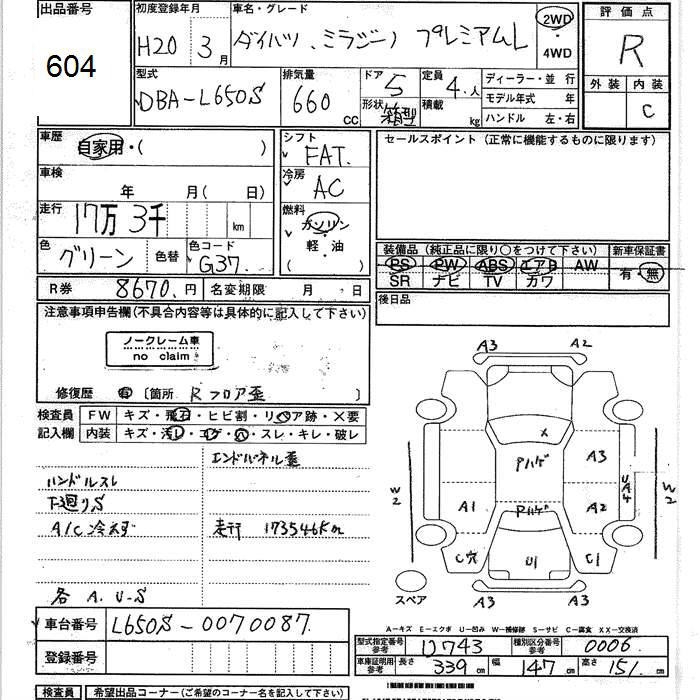 出品番号
604
初度登録年月
H20 3月
車名・グレード
ダイハツ、ミラジーノ プレミアムL
2WD
・
4WD
評価点
R
外装 内装
C
型式
DBA-L650S
排気量
660 cc
ドア 5
形状 箱型
定員 4.人
積載 kg
ディーラー・並 行
モデル年式 年
ハンドル 左・右
車歴
自家用・( )
車検
年 月( 日)
走行
17万 3千 km
色
グリーン
色替
色コード
G37.
シフト
FAT.
冷房
AC
燃料
ガソリン
・
軽・油
( )
セールスポイント (正常に機能するものに限ります)
装備品 (純正品に限り○をつけて下さい) 新車保証書
PS PW ABS エアB AW
SR ナビ TV カワ
有・無
R券 8670.円 名変期限 月 日
後日品
注意事項申告欄(不具合内容等は具体的に記入して下さい)
ノークレーム車
no claim
修復歴 有 〔箇所 Rフロア歪 〕
検査員
記入欄
FW キズ・飛石・ヒビ割・リペア跡・X要
内装 キズ・汚レ・コゲ・穴・スレ・キレ・破レ
エンドパネル歪
ハンドルスレ
下廻りS
A/C冷えず 走行 173546Km
各 A. U-S
A3 A2
X
Pハゲ
A3
W2
A1
Pハゲ
A2
UA4
W2
C穴
U1
C1
スペア
A3 A3
A-キズ E-エクボ U-凹み W-補修跡 S-サビ C-腐食 XX-交換済
車台番号 L650S-0070087.
登録番号
型式指定番号
参考
12743
種別区分番号
参考
0006.
車庫証明用
参考
長さ 339 cm 幅 147 cm 高さ 151. cm
検査員 希望出品コーナー(ご希望のコーナー名を記入して下さい)